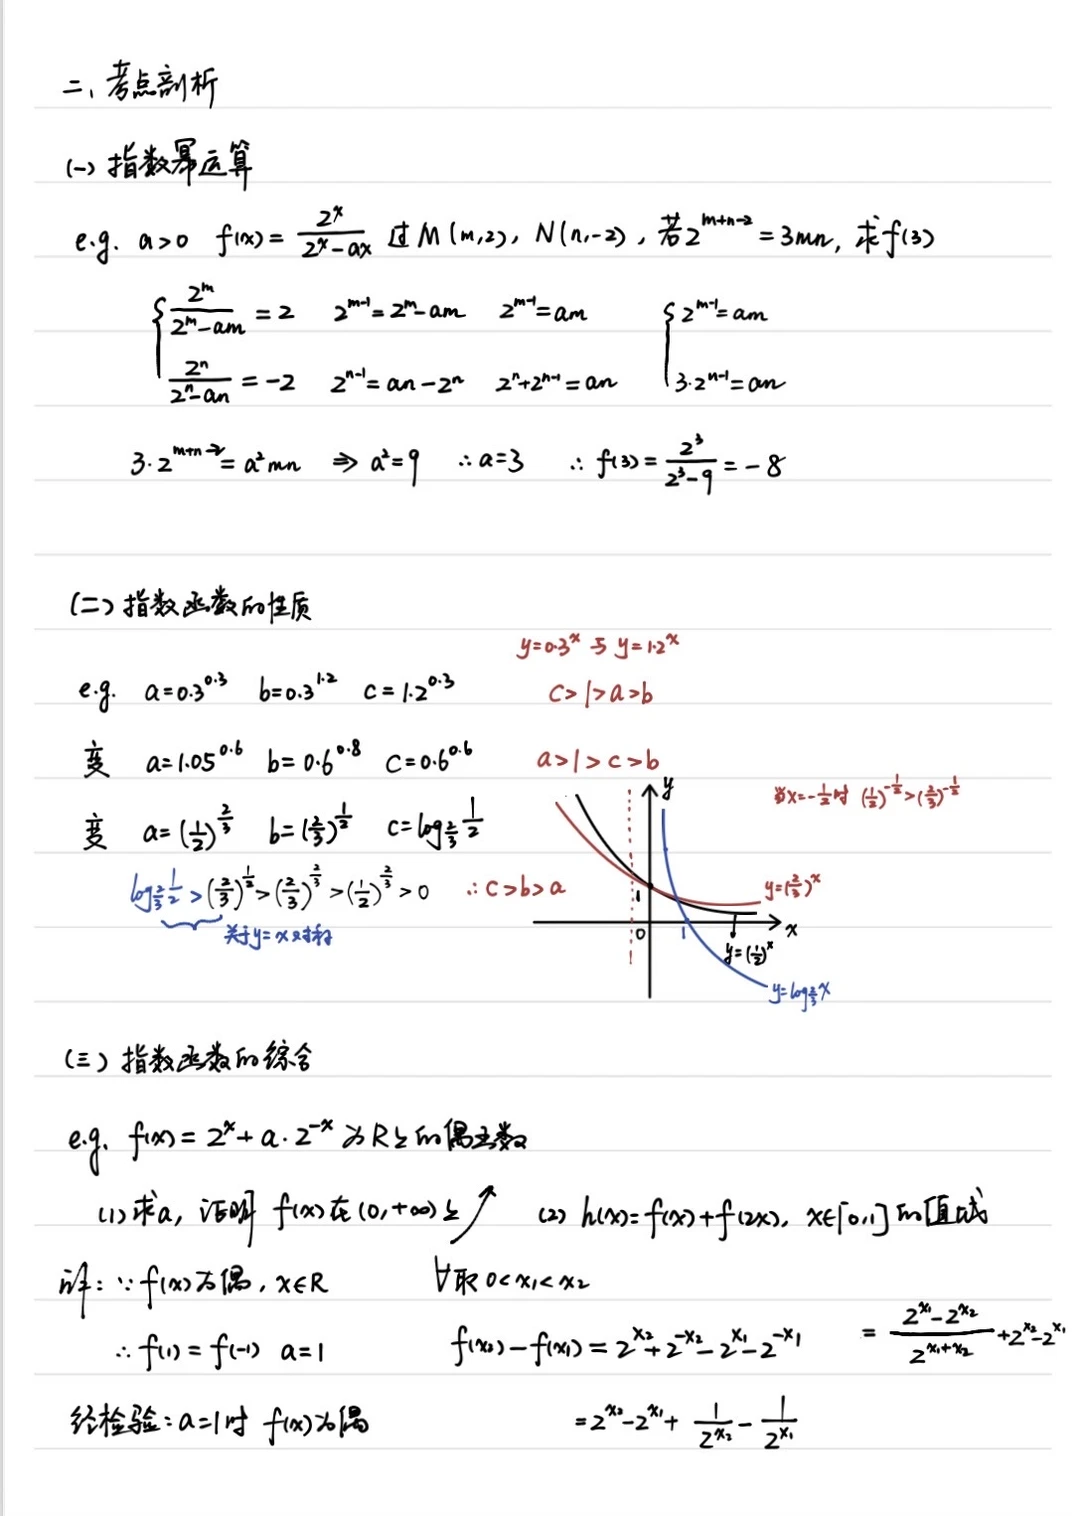 二、考点剖析
(一) 指数幂运算
e.g. a>0 f(x)=2^x/(2^x-ax) 过M(m,2), N(n,-2), 若2^(m+n-2)=3mn, 求f(3)
{ 2^m/(2^m-am)=2 2^(m-1)=2^m-am 2^(m-1)=am { 2^(m-1)=am
2^n/(2^n-an)=-2 2^(n-1)=an-2^n 2^n+2^(n-1)=an 3·2^(n-1)=an
3·2^(m+n-2)=a²mn ⇒ a²=9 ∴a=3 ∴ f(3)=2³/(2³-9)=-8
(二) 指数函数的性质
y=0.3^x 与 y=1.2^x
e.g. a=0.3^0.3 b=0.3^1.2 c=1.2^0.3 c>1>a>b
变 a=1.05^0.6 b=0.6^0.8 c=0.6^0.6 a>1>c>b
变 a=(1/2)^(2/3) b=(2/3)^(1/2) c=log_(2/3) 1/2
log_(2/3) 1/2 > (2/3)^(1/2) > (2/3)^(2/3) > (1/2)^(2/3) > 0 ∴c>b>a
关于y=x对称
当x=-1/2时 (1/2)^(-1/2)>(2/3)^(-1/2)
y
y=(2/3)^x
1
0 1 x
y=(1/2)^x
y=log_(2/3) x
(三) 指数函数的综合
e.g. f(x)=2^x+a·2^(-x)为R上的偶函数
(1)求a, 证明 f(x)在(0,+∞)上↗ (2) h(x)=f(x)+f(2x), x∈[0,1]的值域
解:∵f(x)为偶, x∈R ∀取0<x₁<x₂
∴f(1)=f(-1) a=1 f(x₂)-f(x₁)=2^x₂+2^(-x₂)-2^x₁-2^(-x₁) =(2^x₁-2^x₂)/2^(x₁+x₂)+2^x₂-2^x₁
经检验:a=1时 f(x)为偶 =2^x₂-2^x₁+1/2^x₂-1/2^x₁